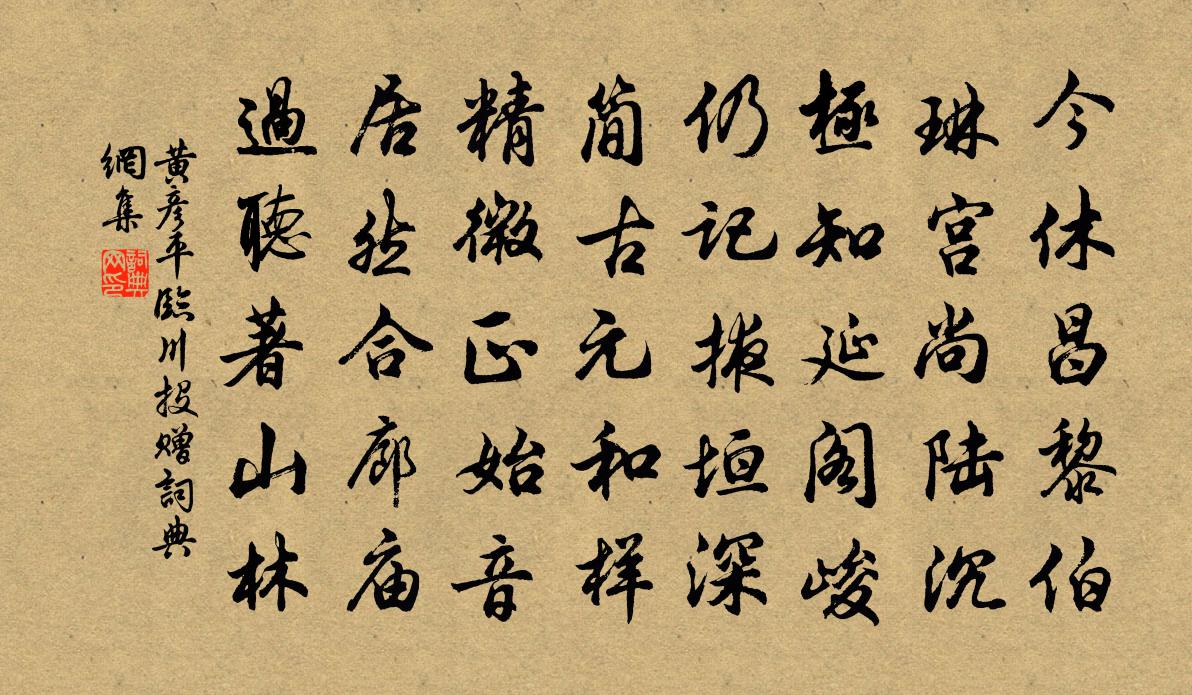 今休昌黎伯
琳宫尚陆沉
極知延阁峻
仍记掖垣深
简古元和样
精微正始音
居然合廊庙
過聴著山林
黄彦平臨川投赠詞典
網集
詞典
网印